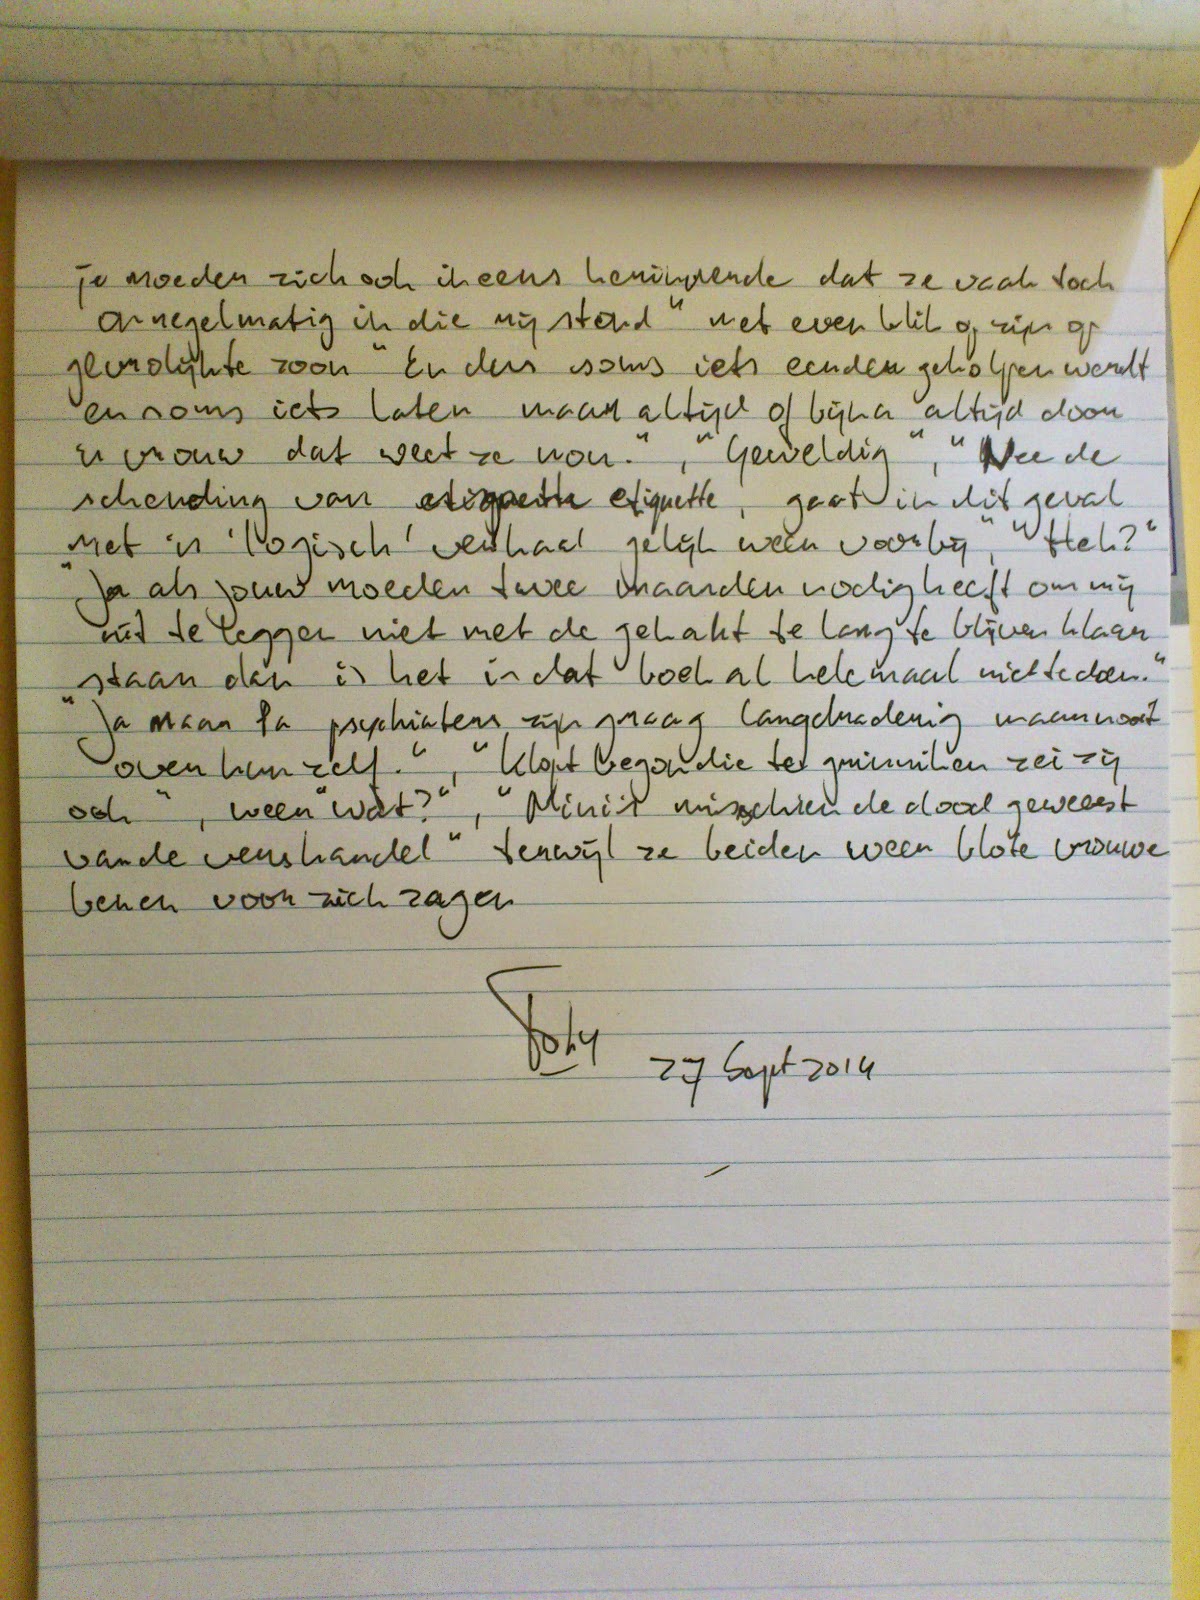 je moeder zich ook ineens herinnerde dat ze vaak toch
onregelmatig in die mij stond" met even blik op zijn op
gevrolijkte zoon "En dus soms iets eerder geholpen werdt
en soms iets later maar altijd of bijna altijd door
'n vrouw dat weet ze nou.", "Geweldig", "Nee de
schending van etiquette, gaat in dit geval
met 'n 'logisch' verhaal gelijk weer voorbij", "Heh?"
"Ja als jouw moeder twee maanden nodig heeft om mij
uit te leggen niet met de gehakt te lang te blijven klaar
staan dan is het in dat boek al helemaal niet te doen."
"Ja maar Pa psychiaters zijn graag langdraderig maar nooit
over hun zelf.", "Klopt begon die te grinniken zei zij
ook", weer "wat?", "Minit misschien de dood geweest
van de vershandel" terwijl ze beiden weer blote vrouwe
benen voor zich zagen
27 Sept 2014